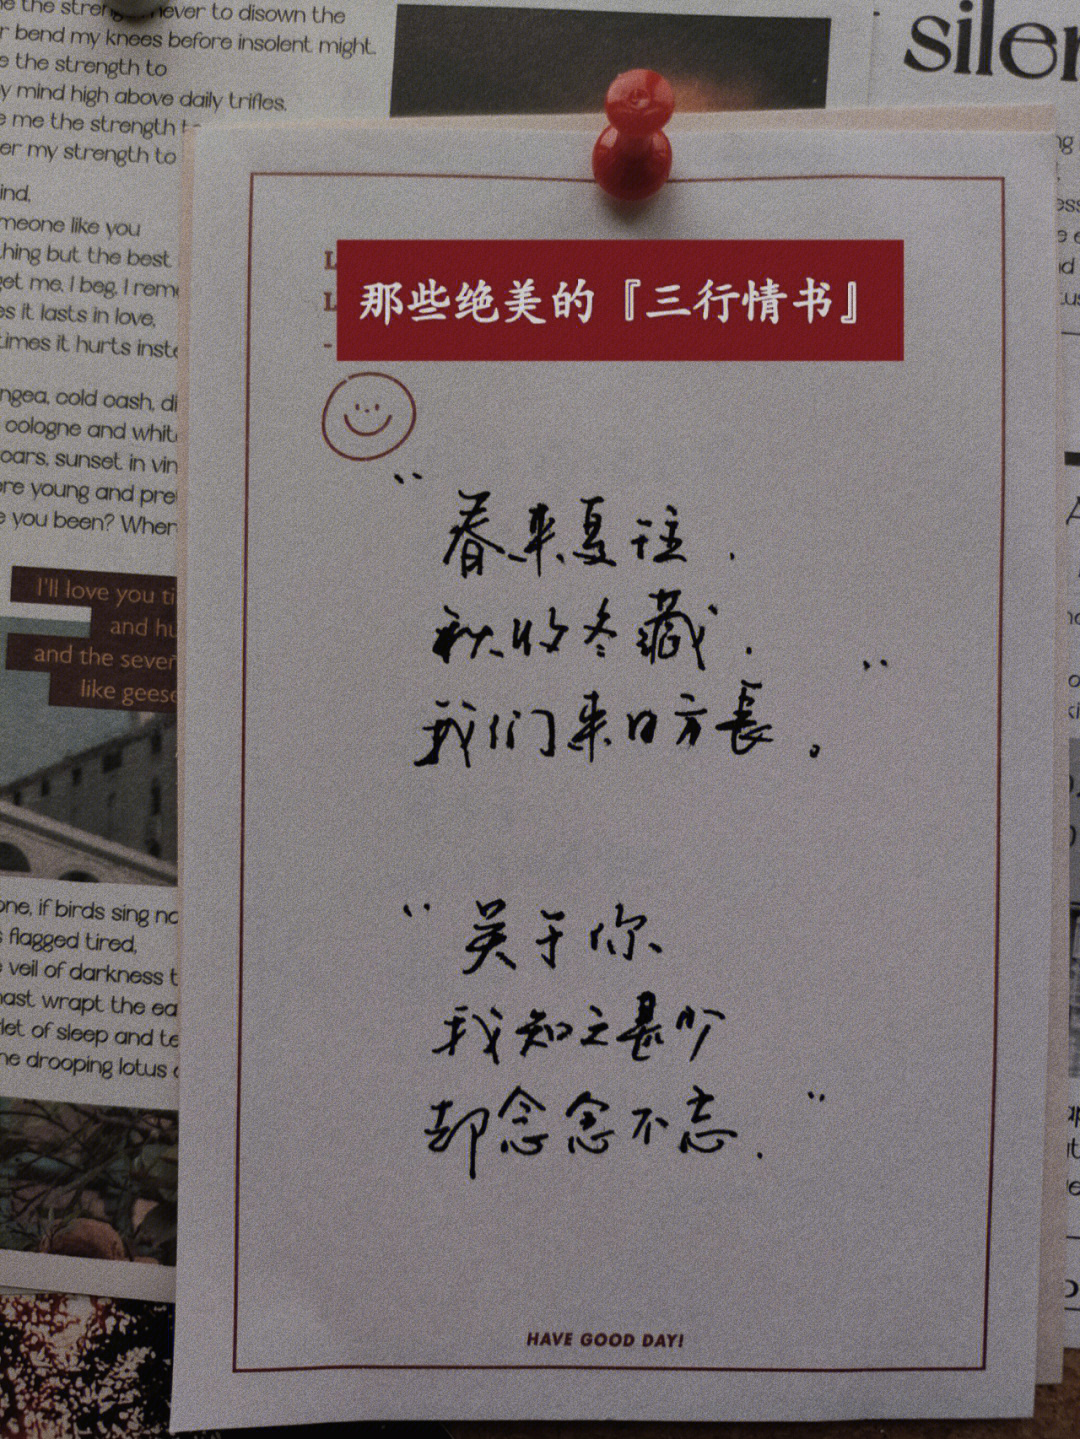 never to disown the
r bend my knees before insolent might.
e the strength to
y mind high above daily trifles.
e me the strength t
er my strength to
ind,
meone like you
hing but the best
get me, I beg, I rem
es it lasts in love,
times it hurts inste
ngea, cold cash, di
cologne and whit
oars, sunset in vin
ore young and pre
e you been? When
I'll love you ti
and hu
and the seven
like geese
one, if birds sing no
s flagged tired,
e veil of darkness t
hast wrapt the ea
let of sleep and te
he drooping lotus
silen
那些绝美的『三行情书』
“春来夏往.
秋收冬藏.
我们来日方長。”
“关于你、
我知之甚少
却念念不忘.”
HAVE GOOD DAY!